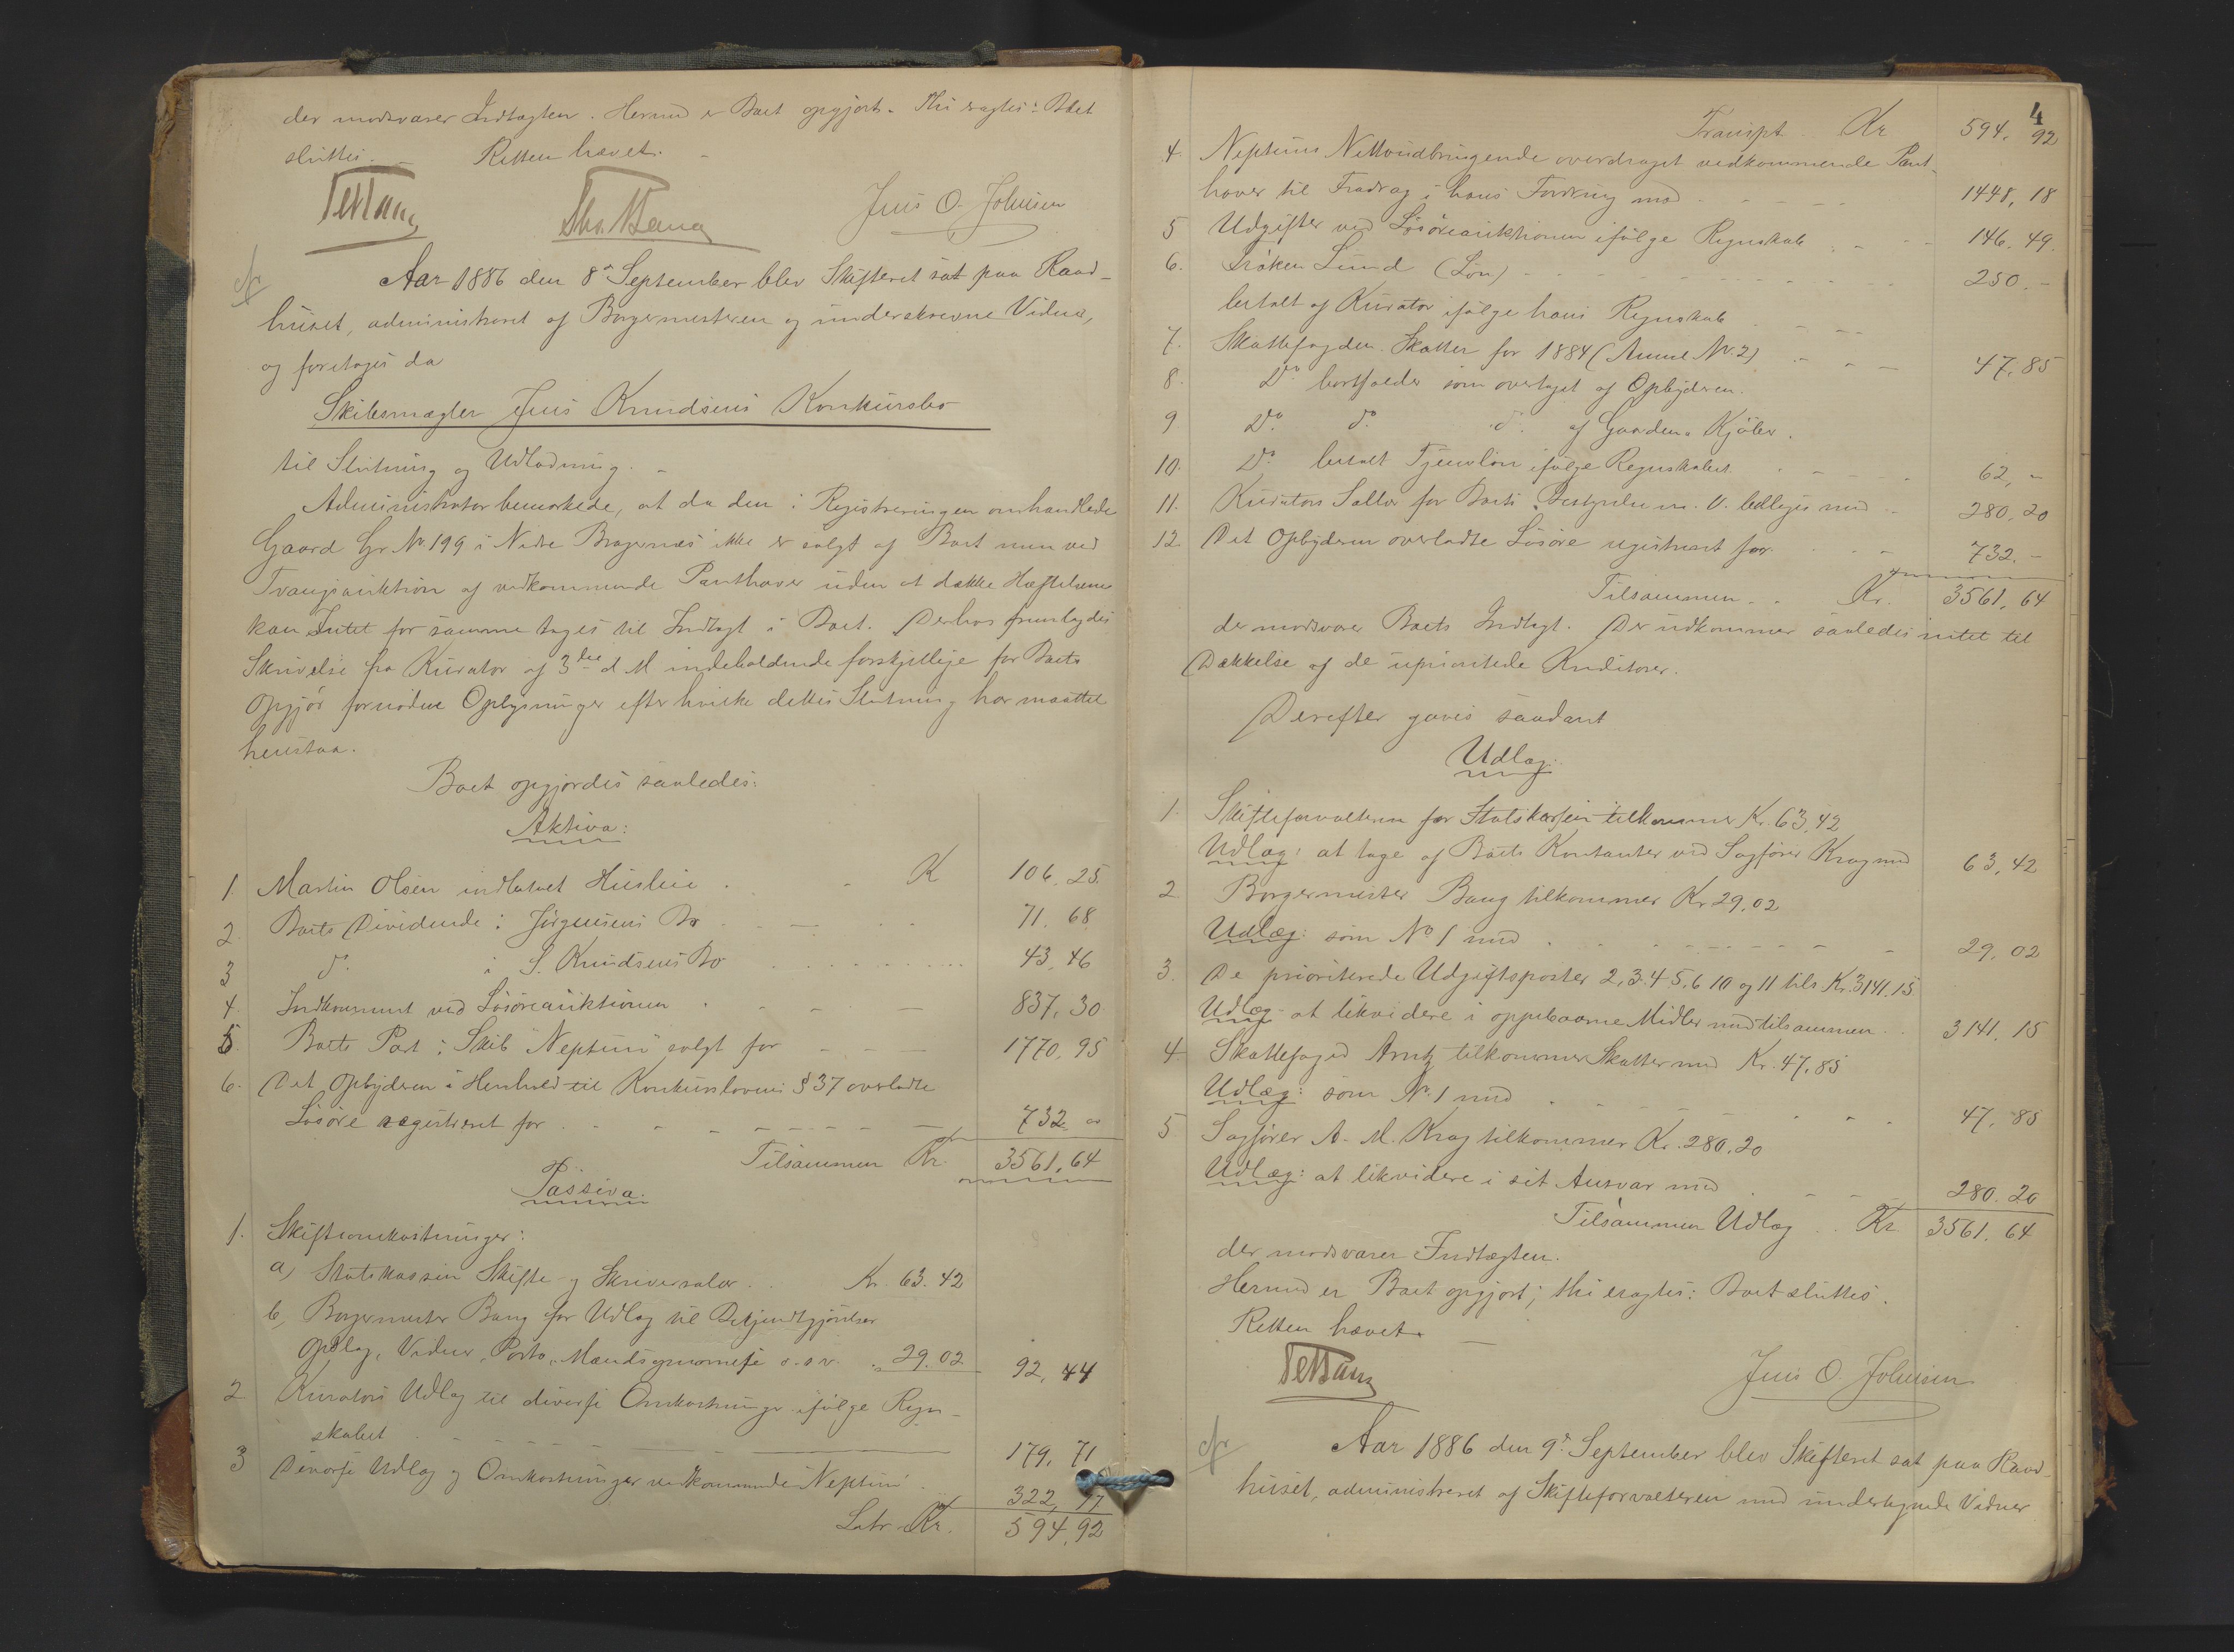 der modsvarer Indtægten. Hermed er Boet opgjort. Thi eragtes: Boet
sluttes. – Retten hævet. –
Jens O. Johnsen
Aar 1886 den 8de September blev Skifteret sat paa Raad-
huset, administreret af Borgermesteren og underskrevne Vidner,
og foretoges da
Skibsmægler Jens Knudsens Konkursbo
til Slutning og Udlodning. –
Administrator bemærkede, at da den i Registreringen omhandlede
Gaard Gr. No 199 i Nedre Bragernæs ikke er solgt af Boet men ved
Tvangsauktion af vedkommende Panthaver uden at dække Hæftelserne
kan Intet for samme tages til Indtægt i Boet. Derhos fremlagdes
Skrivelse fra Kurator af 3die d. M. indeholdende forskjellige for Boets
Opgjør fornødne Oplysninger efter hvilke dettes Slutning har maattet
henstaa.
Boet opgjordes saaledes:
Aktiva:
1. Martin Olsen indbetalt Husleie . - K 106.25.
2. Boets Dividende i Jørgensens Bo 71.68
3 do i S. Knudsens Bo 43.46
4. Indkommet ved Løsøreauktionen 837.30
5 Boets Part i Skib "Neptun" solgt for 1770.95
6. Det Opbyderen i Henhold til Konkurslovens § 37 overladte
Løsøre registreret for 732 "
Tilsammen Kr. 3561.64
Passiva.
1. Skifteomkostninger:
a) Statskassen Skifte- og Skriversalær.. Kr. 63.42
b) Borgermester Bang for Udlæg til Bekjendtgjørelser
Opslag, Vidner, Porto, o.s.v. " 29.02 92,44
2 Kurators Udlæg til diverse Omkostninger ifølge Regn-
skabet 179,71
3 Diverse Udlæg og Omkostninger vedkommende "Neptun" 322,77
Latr. Kr. 594,92
4
Transpt. Kr 594,92
4. Neptuns Nettoudbringende overdraget vedkommende Pant-
haver til Fradrag i hans Fordring med 1448,18
5 Udgifter ved Løsøreauktionen ifølge Regnskab 146.49.
6. Frøken Lund (Løn) 250.-
betalt af Kurator ifølge hans Regnskab
7. Skattefogden. Skatter for 1884 (Anml. No. 2) 47,85
8. Do bortfalder som overtaget af Opbyderen.
9. Do do do af Gaardens Kjøber.
10. Do betalt Tjenerløn ifølge Regnskabet 62,-
11. Kurators Sallær for Boets Bestyrelse m. V. bedleges med 280,20
12. Det Opbyderen overladte Løsøre registreret for 732.-
Tilsammen.. Kr. 3561,64
der modsvarer Boets Indtægt. Der udkommer saaledes intet til
Dækkelse af de uprioritede Kreditorer.
Derefter gaves saadant
Udlæg.
1. Skifteforvalteren for Statskassen tilkommer Kr. 63,42
Udlæg: at tage af Boets Kontanter ved Sagfører Krag med 63,42
2 Borgermester Bang tilkommer Kr 29,02
Udlæg: som No 1 med 29,02
3. De prioriterede Udgiftsposter 2,3.4.5.6 10 og 11 tils. Kr. 3141.15
Udlæg at likvidere i oppebaarne Midler med tilsammen 3141.15
4 Skattefoged Arntz tilkommer Skatter med Kr. 47,85
Udlæg: som No 1 med 47,85
5 Sagfører A. M. Krag tilkommer Kr. 280,20
Udlæg: at likvidere i sit Ansvar med 280.20
Tilsammen Udlæg .. Kr. 3561,64
der modsvarer Indtægten.
Hermed er Boet opgjort; thi eragtes: Boet sluttes.
Retten hævet. –
Jens O. Johnsen
Aar 1886 den 9de September blev Skifteret sat paa Raad-
huset, administreret af Skifteforvalteren med undertegnede Vidner